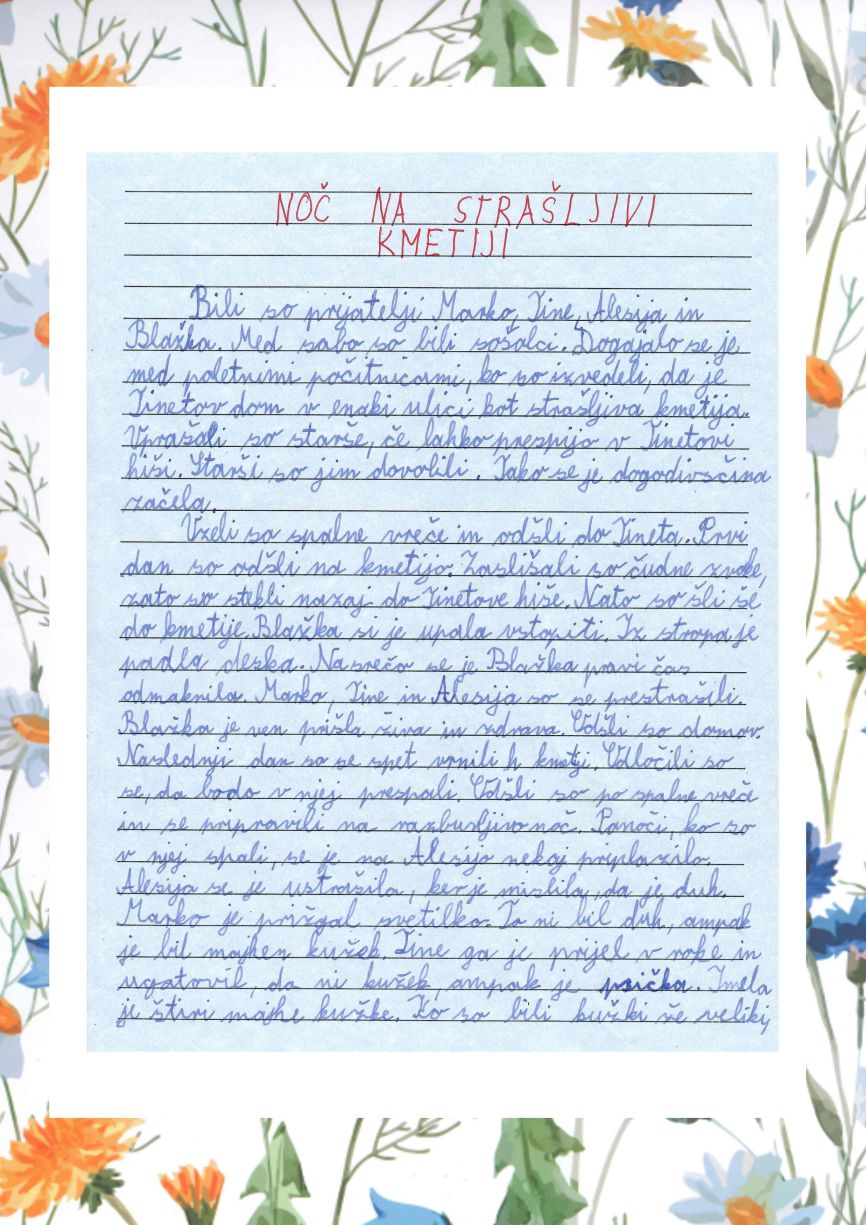 NOČ NA STRAŠLJIVI
KMETIJI
Bili so prijatelji Marko, Tine, Alesija in
Blažka. Med sabo so bili sošolci. Dogajalo se je
med poletnimi počitnicami, ko so izvedeli, da je
Tinetov dom v enaki ulici kot strašljiva kmetija.
Vprašali so starše, če lahko prespijo v Tinetovi
hiši. Starši so jim dovolili. Tako se je dogodivščina
začela.
Vzeli so spalne vreče in odšli do Tineta. Prvi
dan so odšli na kmetijo. Zaslišali so čudne zvoke,
zato so stekli nazaj do Tinetove hiše. Nato so šli še
do kmetije. Blažka si je upala vstopiti. Iz stropa je
padla deska. Na srečo se je Blažka pravi čas
odmaknila. Marko, Tine in Alesija so se prestrašili.
Blažka je ven prišla živa in zdrava. Odšli so domov.
Naslednji dan so se spet vrnili h kmetji. Odločili so
se, da bodo v njej prespali. Odšli so po spalne vreče
in se pripravili na razburljivo noč. Ponoči, ko so
v njej spali, se je na Alesijo nekaj priplazilo.
Alesija se je ustrašila, ker je mislila, da je duh.
Marko je prižgal svetilko. To ni bil duh, ampak
je bil majhen kužek. Tine ga je prijel v roke in
ugotovil, da ni kužek, ampak je psička. Imela
je štiri majhe kužke. Ko so bili kužki že veliki,